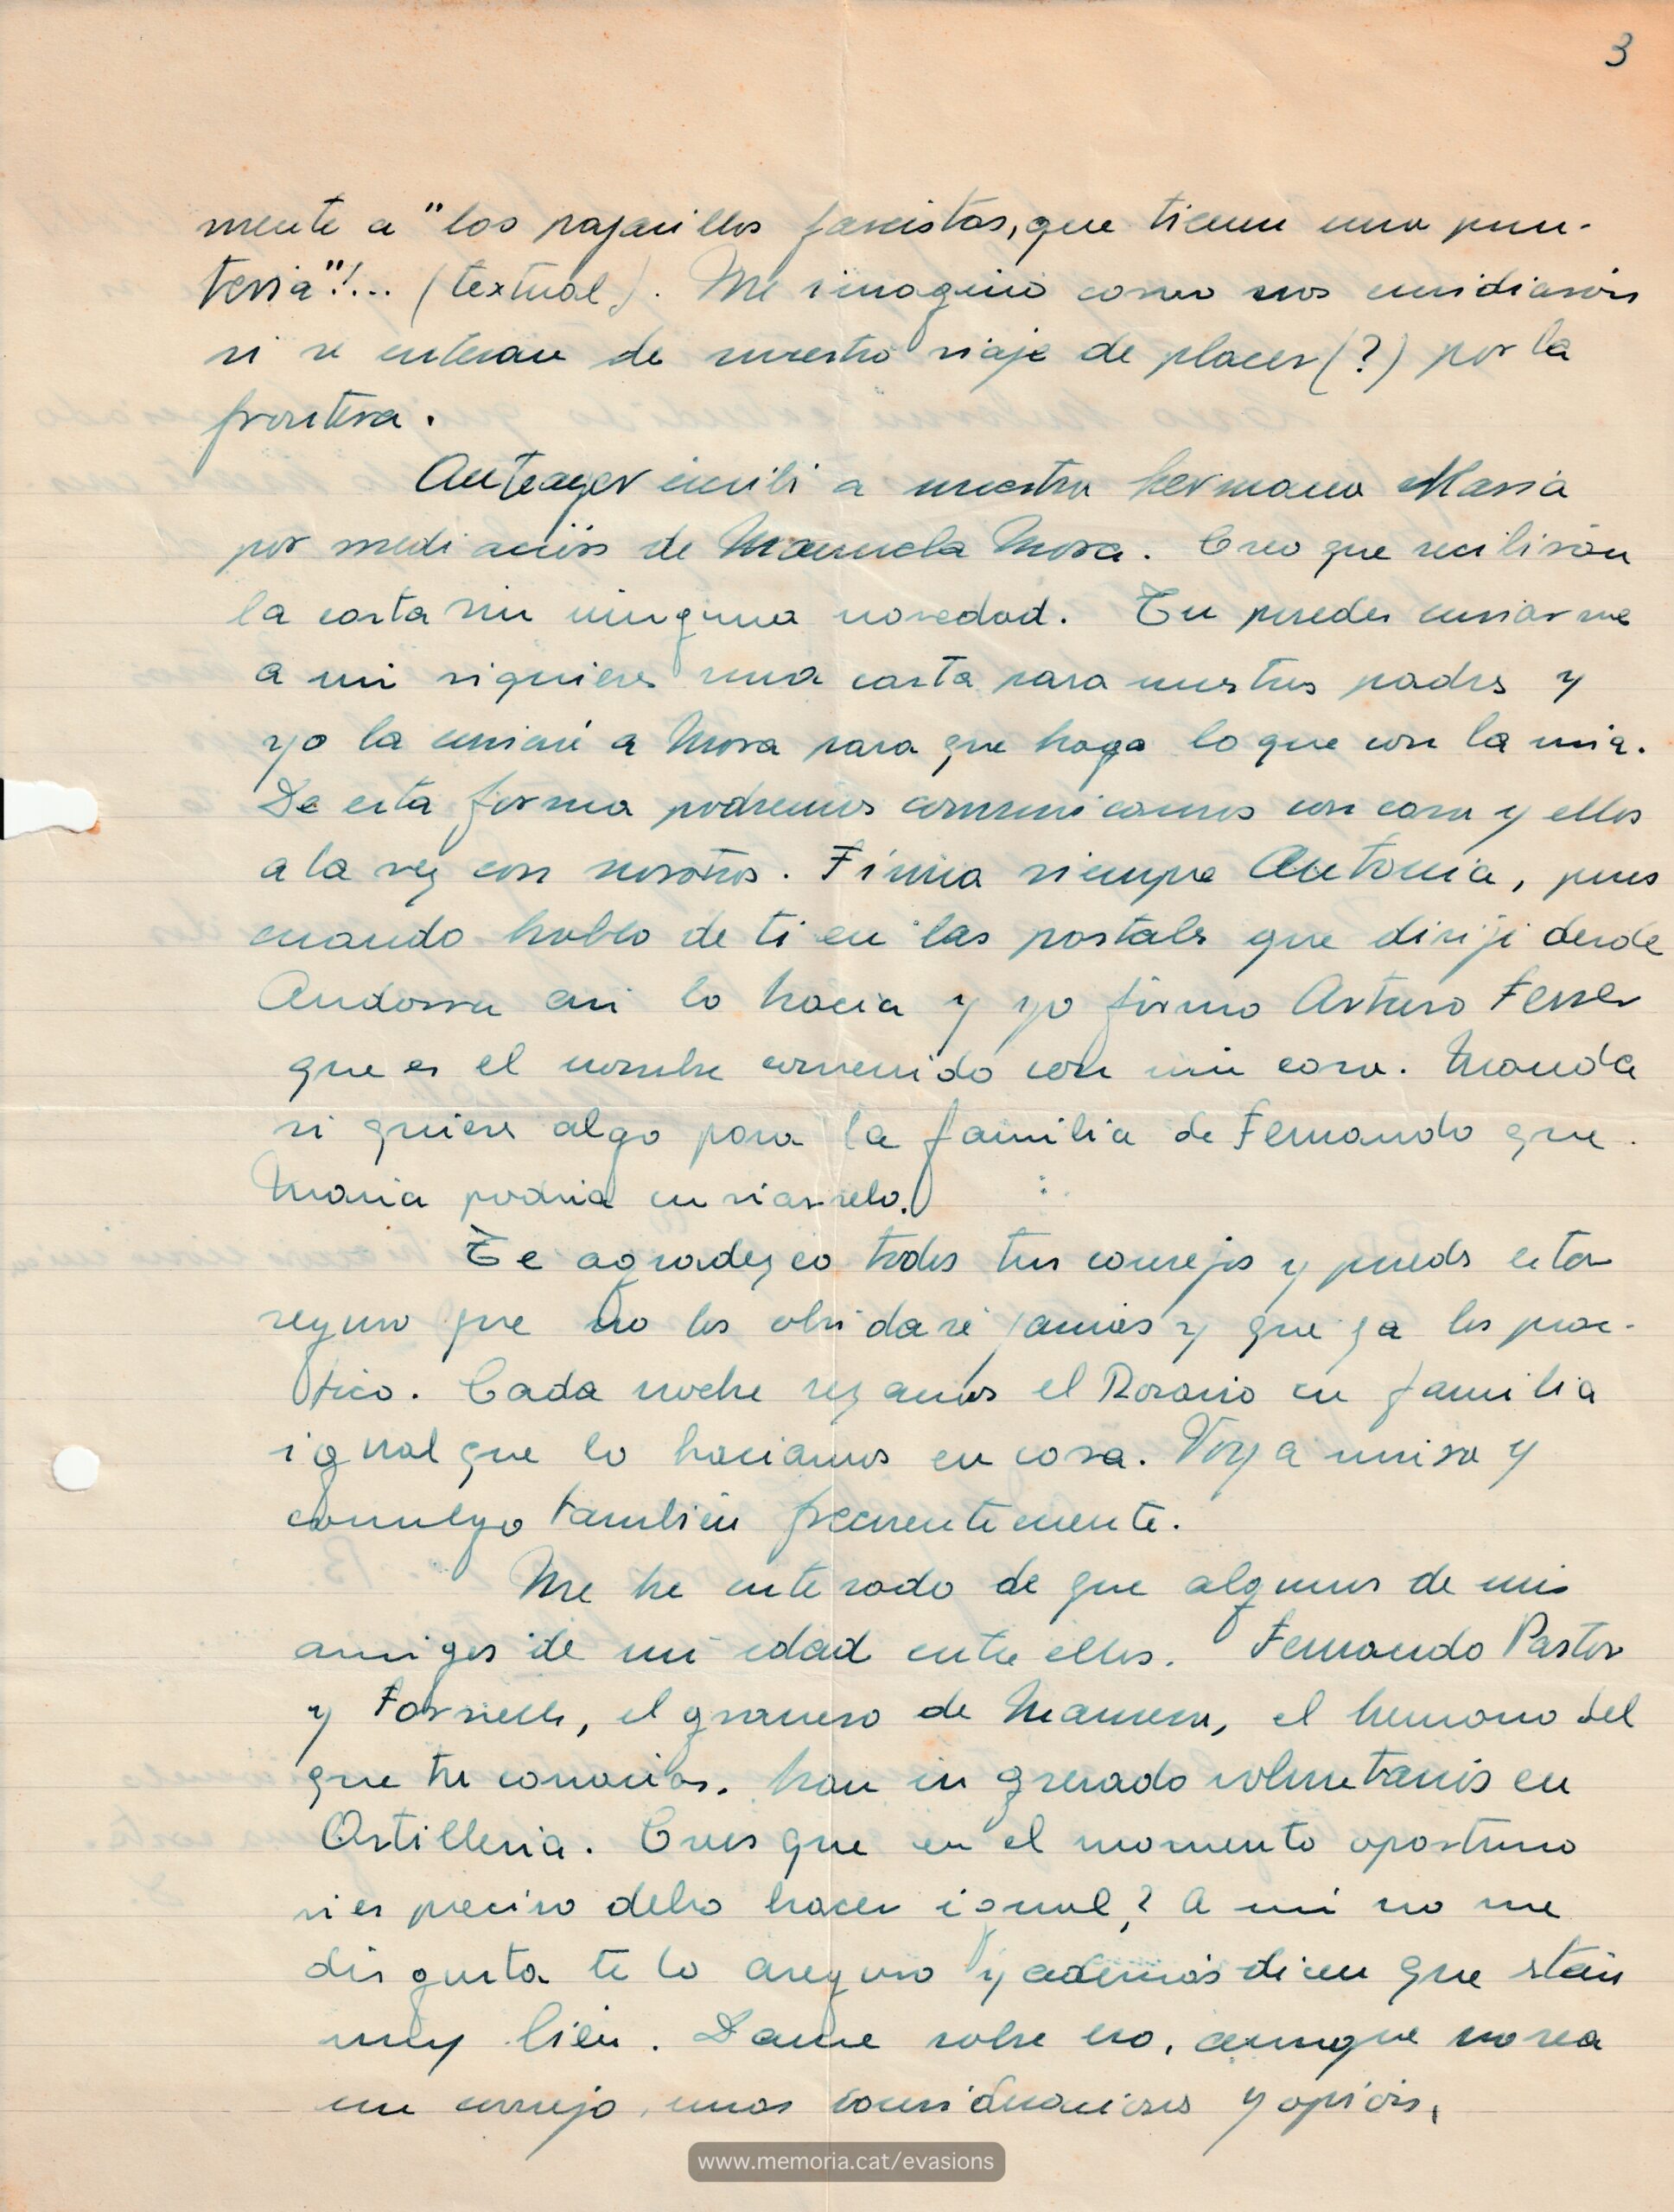 3
mente a "los pajarillos fascistas, que tienen una pun-
teria"!... (textual). Me imagino como nos envidiarán
si se enteran de nuestro viaje de placer (?) por la
frontera.
Anteayer escribí a nuestra hermana Maria
por mediación de Manuela Mora. Creo que recibirán
la carta sin ninguna novedad. Tu puedes enviarme
a mi si quieres una carta para nuestros padres y
yo la enviaré a Mora para que haga lo que con la mia.
De esta forma podremos comunicarnos con casa y ellos
a la vez con nosotros. Firma siempre Antonia, pues
cuando hablo de ti en las postales que dirijí desde
Andorra asi lo hacia y yo firmo Arturo Ferrer
que es el nombre convenido con mi casa. Manda
si quieres algo para la familia de Fernando que
Maria podria enviarselo.
Te agradezco todos tus consejos y puedes estar
seguro que no los olvidaré jamás y que ya los prac-
tico. Cada noche rezamos el Rosario en familia
igual que lo haciamos en casa. Voy a misa y
comulgo también frecuentemente.
Me he enterado de que algunos de mis
amigos de mi edad entre ellos. Fernando Pastor
y Fornells, el granero de Manresa, el hermano del
que tu conocias. han ingresado voluntarios en
Artilleria. Crees que en el momento oportuno
si es preciso debo hacer igual? A mi no me
disgusta te lo aseguro y además dicen que stán
muy bien. Dame sobre eso, aunque no sea
un consejo, unas consideraciones y opinión,
www.memoria.cat/evasions